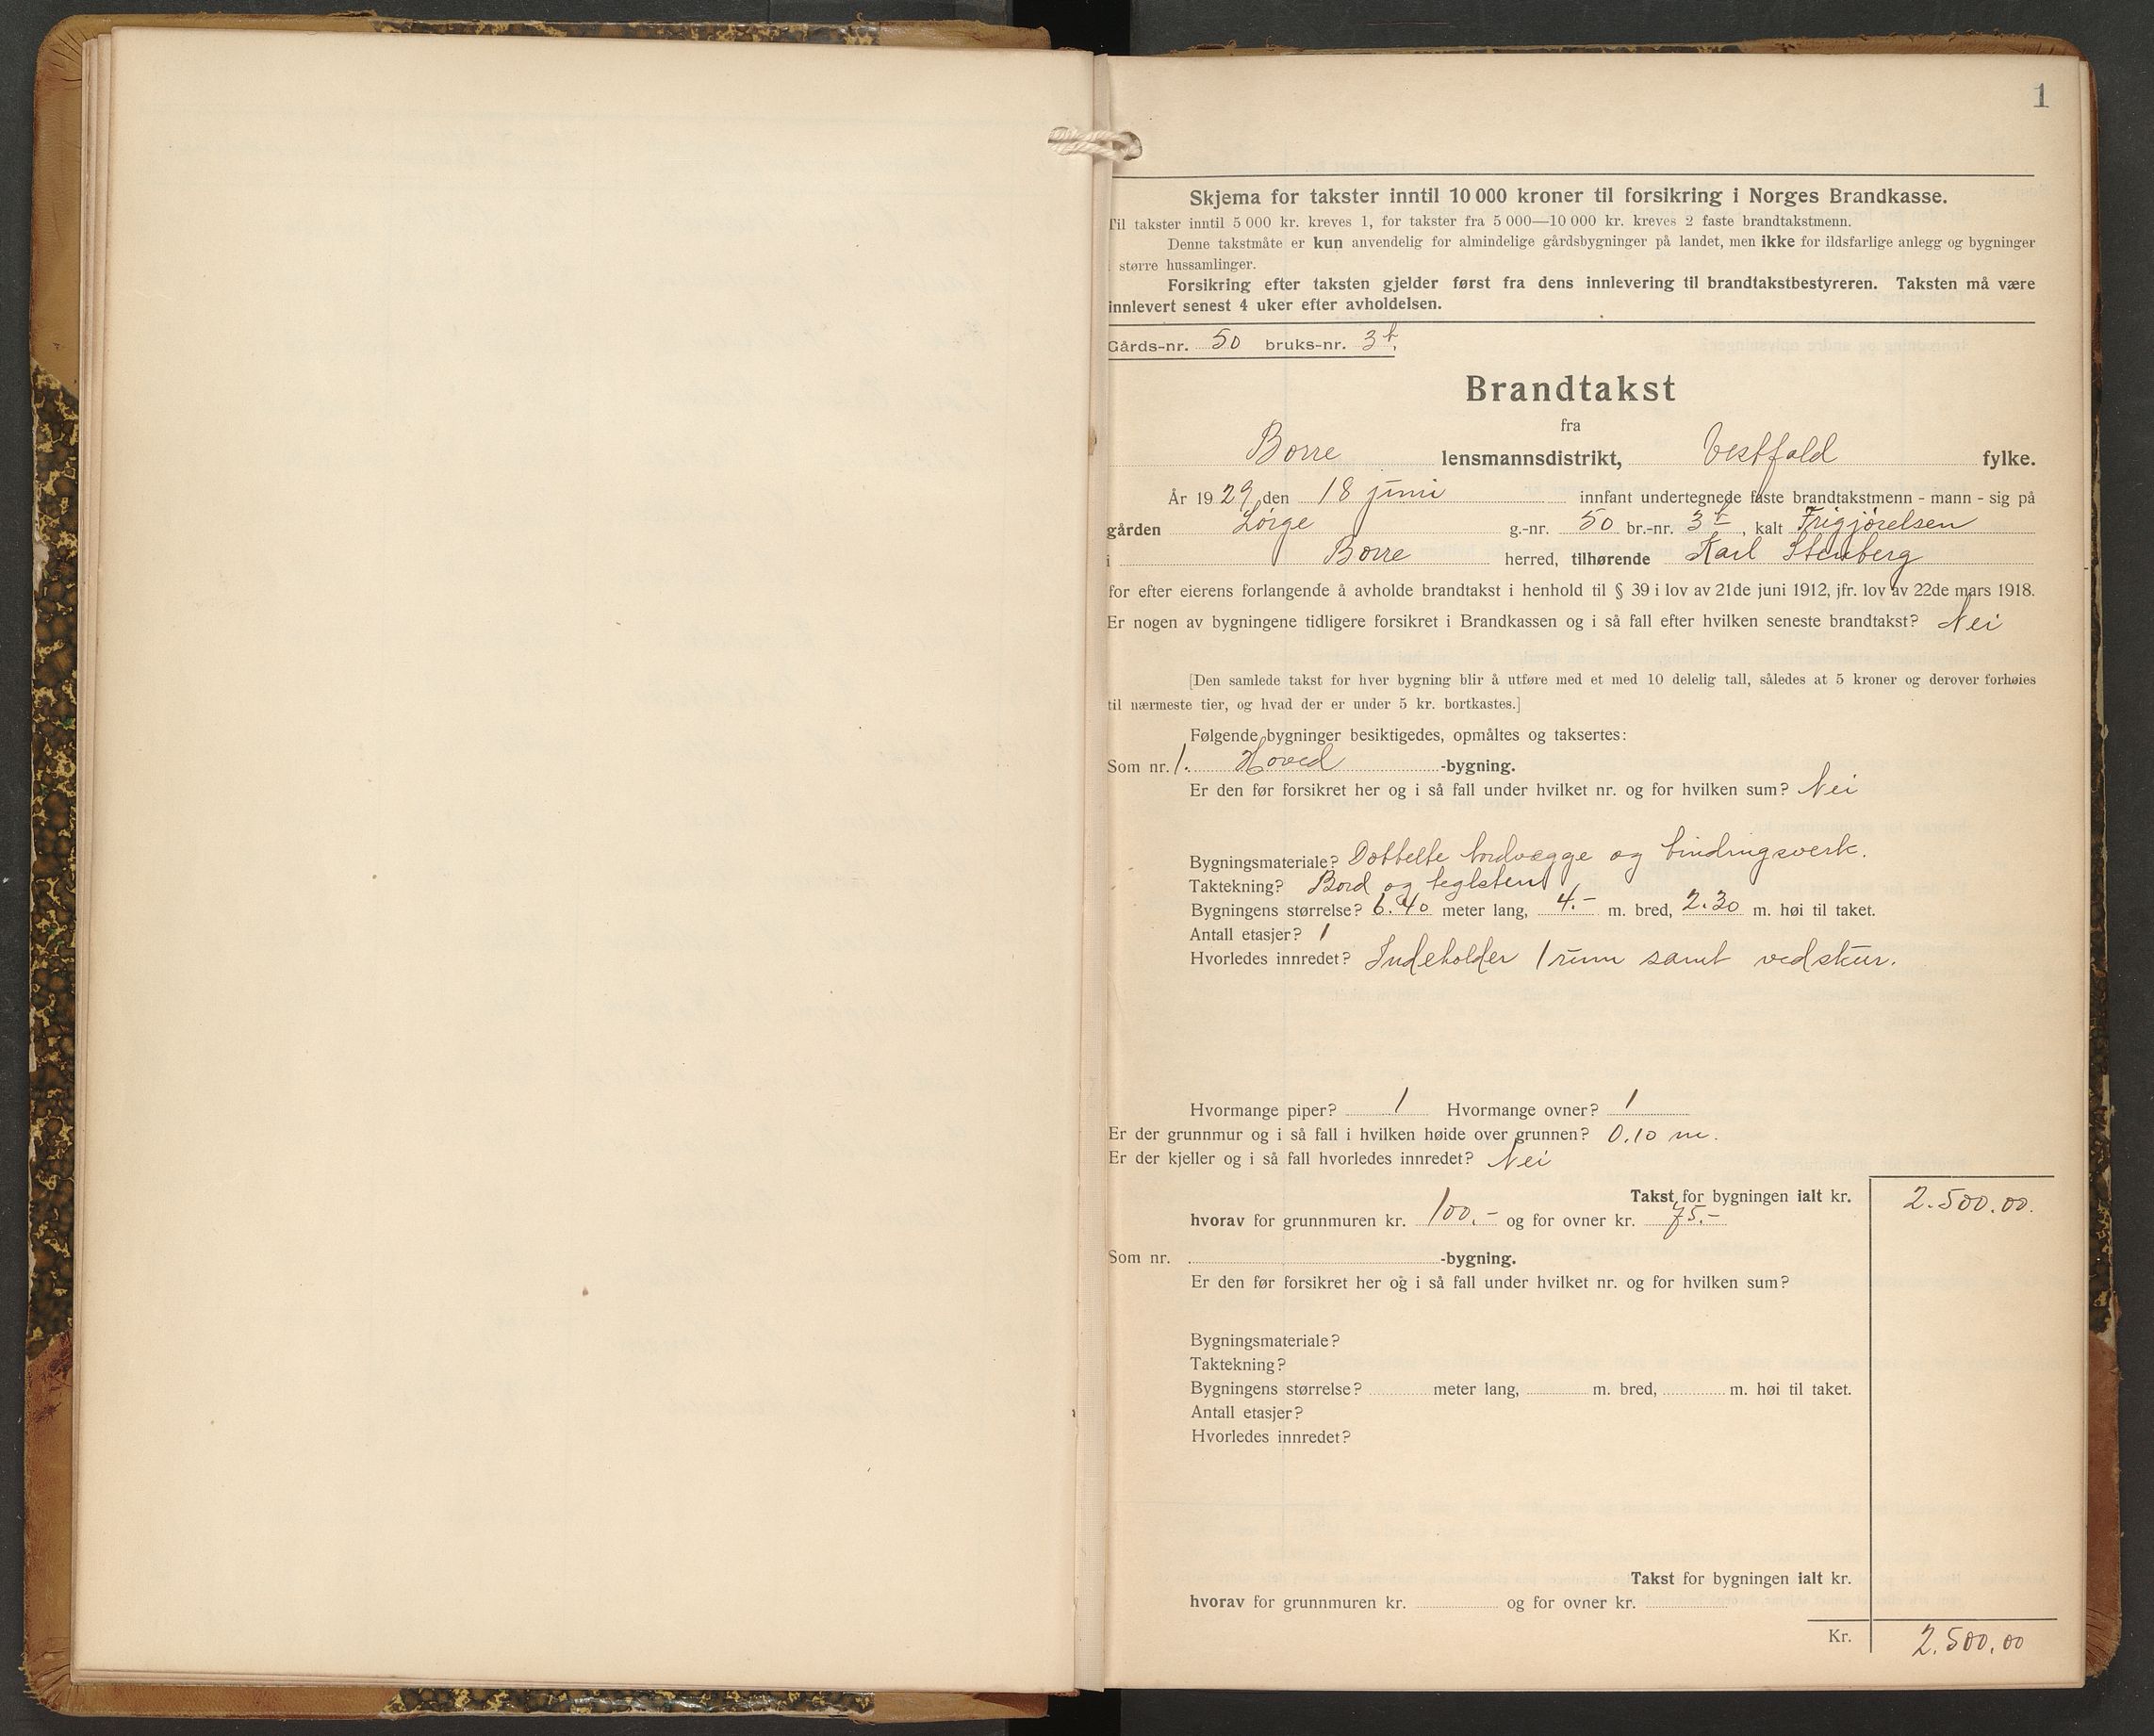 1
Skjema for takster inntil 10 000 kroner til forsikring i Norges Brandkasse.
Til takster inntil 5 000 kr. kreves 1, for takster fra 5 000—10 000 kr. kreves 2 faste brandtakstmenn.
Denne takstmåte er kun anvendelig for almindelige gårdsbygninger på landet, men ikke for ildsfarlige anlegg og bygninger
i større hussamlinger.
Forsikring efter taksten gjelder først fra dens innlevering til brandtakstbestyreren. Taksten må være
innlevert senest 4 uker efter avholdelsen.
Gårds-nr. 50 bruks-nr. 3
Brandtakst
fra
Borre lensmannsdistrikt, Vestfold fylke.
År 1929 den 18 juni innfant undertegnede faste brandtakstmenn - mann - sig på
gården Lørge g.-nr. 50 br.-nr. 3 , kalt Frigjørelsen
i Borre herred, tilhørende Karl Stenberg
for efter eierens forlangende å avholde brandtakst i henhold til § 39 i lov av 21de juni 1912, jfr. lov av 22de mars 1918.
Er nogen av bygningene tidligere forsikret i Brandkassen og i så fall efter hvilken seneste brandtakst? Nei
[Den samlede takst for hver bygning blir å utføre med et med 10 delelig tall, således at 5 kroner og derover forhøies
til nærmeste tier, og hvad der er under 5 kr. bortkastes.]
Følgende bygninger besiktigedes, opmåltes og taksertes:
Som nr. 1. Hoved -bygning.
Er den før forsikret her og i så fall under hvilket nr. og for hvilken sum? Nei
Bygningsmateriale? Dobbelte bordvægge og bindingsverk.
Taktekning? Bord og teglsten
Bygningens størrelse? 6.40 meter lang, 4.- m. bred, 2.30 m. høi til taket.
Antall etasjer? 1
Hvorledes innredet? Indeholder 1 rum samt vedskur.
Hvormange piper? 1 Hvormange ovner? 1
Er der grunnmur og i så fall i hvilken høide over grunnen? 0.10 m.
Er der kjeller og i så fall hvorledes innredet? Nei
Takst for bygningen ialt kr. 2.500.00.
hvorav for grunnmuren kr. 100.- og for ovner kr. 75.-
Som nr. -bygning.
Er den før forsikret her og i så fall under hvilket nr. og for hvilken sum?
Bygningsmateriale?
Taktekning?
Bygningens størrelse? meter lang, m. bred, m. høi til taket.
Antall etasjer?
Hvorledes innredet?
Takst for bygningen ialt kr.
hvorav for grunnmuren kr. og for ovner kr.
Kr. 2.500.00